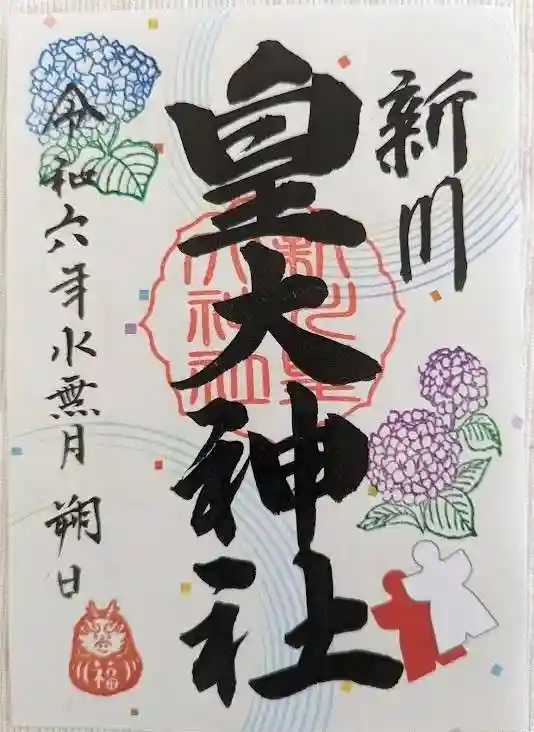 新川
皇大神社
令和六年水無月 朔日
新川皇大神社
福